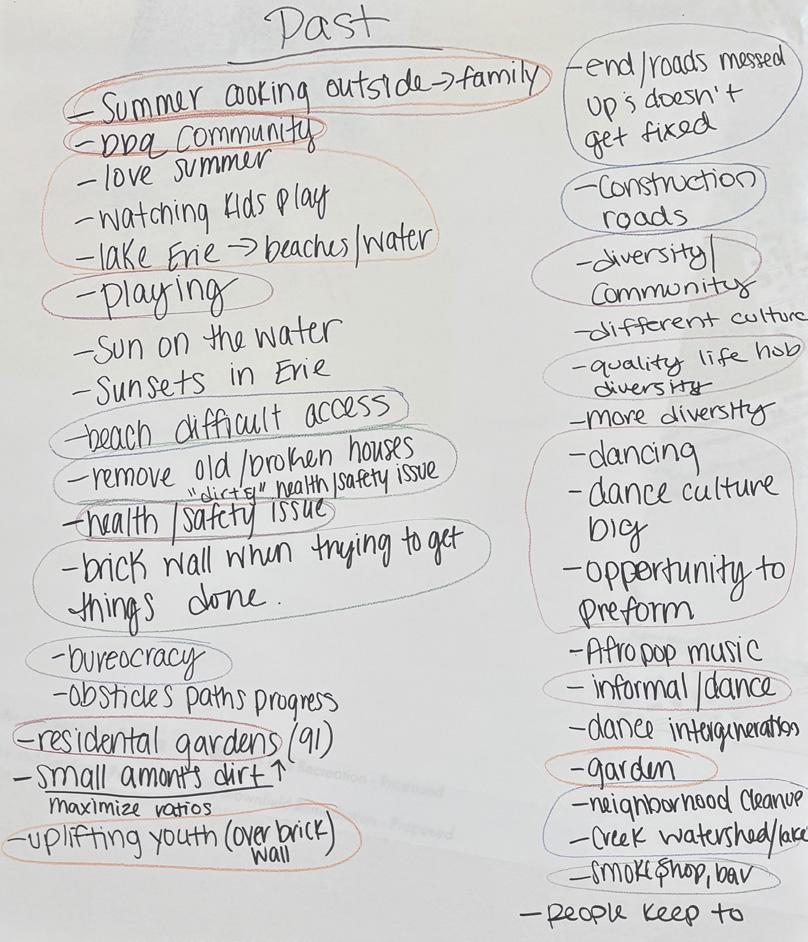 Past
- Summer cooking outside → family
- bbq community
- love summer
- watching kids play
- lake Erie → beaches/water
- playing
- Sun on the water
- Sunsets in Erie
- beach difficult access
- remove old/broken houses
"dirty" health/safety issue
- health/safety issue
- brick wall when trying to get
things done.
- bureocracy
- obsticles paths progress
- residental gardens (91)
- small amonts dirt ↑
maximize ratios
- uplifting youth (over brick)
wall
- end/roads messed
up's doesn't
get fixed
- Construction
roads
- diversity/
Community
- different culture
- quality life hob
diversity
- more diversity
- dancing
- dance culture
big
- opportunity to
preform
- Afropop music
- informal/dance
- dance intergeneration
- garden
- neighborhood Cleanup
- Creek watershed/lake
- smoke shop, bar
- people keep to